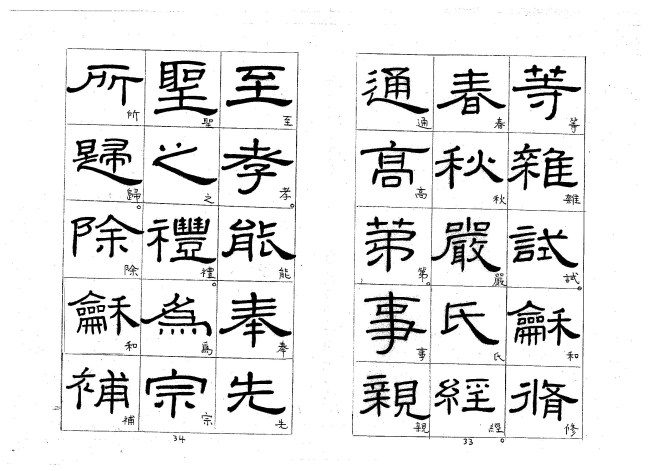 等雜試龢脩
等雜試。和修
春秋嚴氏經
春秋嚴氏經。
通髙苐事親
通高第。事親
33
至孝能奉先
至孝。能奉先
聖之禮為宗
聖之禮。為宗
所歸除龢補
所歸。除和補
34